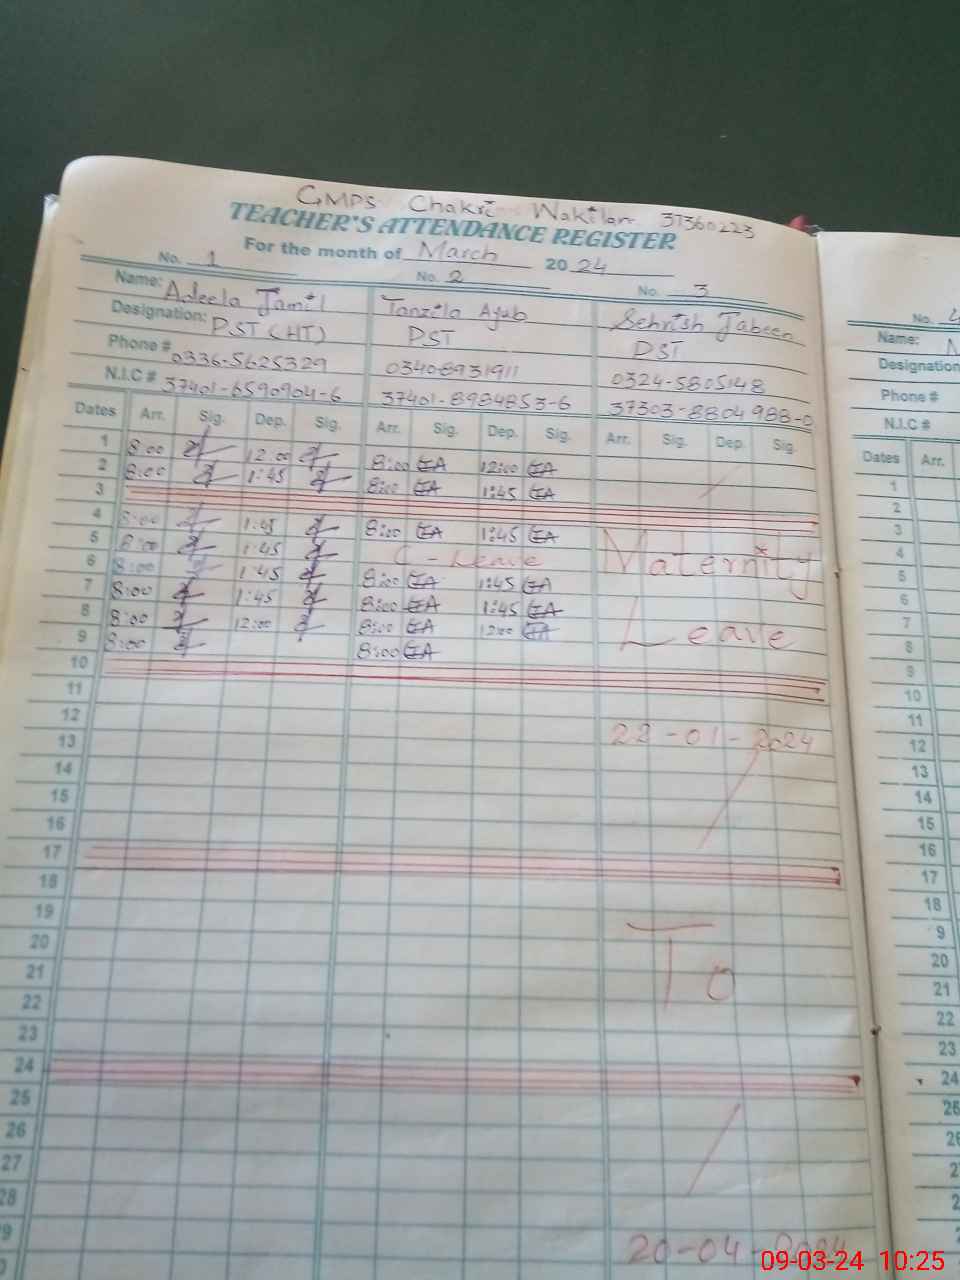 GMPS Chakri Wakilan 37360223
TEACHER'S ATTENDANCE REGISTER
For the month of March 2024
No. 1 No. 2 No. 3
Name: Adeela Jamil Tanzila Ayub Sehrish Jabeen
Designation: PST (HT) PST PST
Phone # 0336-5625329 03408931911 0324-5805148
N.I.C # 37401-6590904-6 37401-8984853-6 37303-8804988-0
Dates Arr. Sig. Dep. Sig. Arr. Sig. Dep. Sig. Arr. Sig. Dep. Sig.
1 8:00 12:00 8:00 12:00
2 8:00 1:45 8:00 1:45
3
4 8:00 1:45 8:00 1:45
5 8:00 1:45 C-Leave Maternity
6 8:00 1:45 8:00 1:45
7 8:00 1:45 8:00 1:45
8 8:00 12:00 8:00 12:00 Leave
9 8:00 8:00
10
11
12
13 22-01-2024
14
15
16
17
18
19
20
21 To
22
23
24
25
26
27
28
29
20-04-2024
No.
Name:
Designation
Phone #
N.I.C #
Dates Arr.
1
2
3
4
5
6
7
8
9
10
11
12
13
14
15
16
17
18
9
20
21
22
23
24
25
09-03-24 10:25